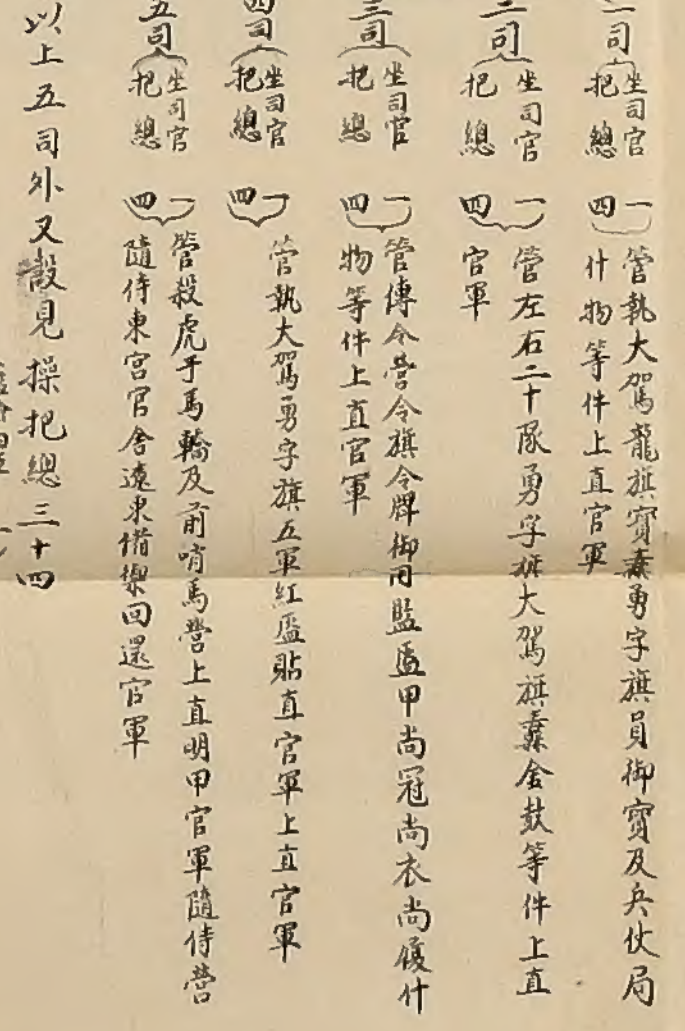 一司
坐司官 一
把總 四
管執大駕龍旗寶纛勇字旗員御寶及兵仗局
什物等件上直官軍
二司
坐司官 一
把總 四
管左右二十隊勇字旗大駕旗纛金鼓等件上直
官軍
三司
坐司官 一
把總 四
管傳令營令旗令牌御用監盔甲尚冠尚衣尚履什
物等件上直官軍
四司
坐司官 一
把總 四
管執大駕勇字旗五軍紅盔貼直官軍上直官軍
五司
坐司官 一
把總 四
管殺虎手馬轎及前哨馬營上直明甲官軍隨侍營
隨侍東宮官舍遼東備禦回還官軍
以上五司外又設見操把總三十四